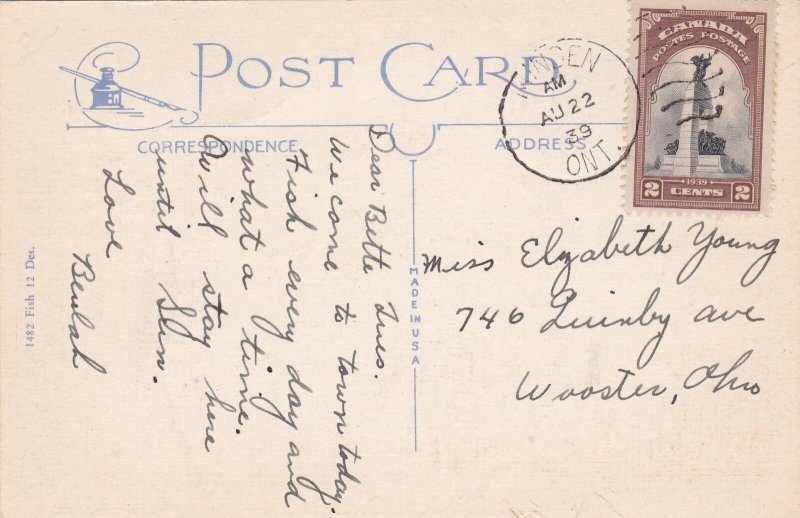 POST CARD
CORRESPONDENCE
ADDRESS
AM
AU 22
39
ONT.
CANADA
POSTES POSTAGE
1939
2 CENTS 2
Dear Bette Tues.
We come to town today.
Fish every day and
what a time.
Will stay here
until Sun.
Love
Beulah
MADE IN USA
1482 Fish 12 Des.
Miss Elizabeth Young
746 Quinby Ave
Wooster, Ohio